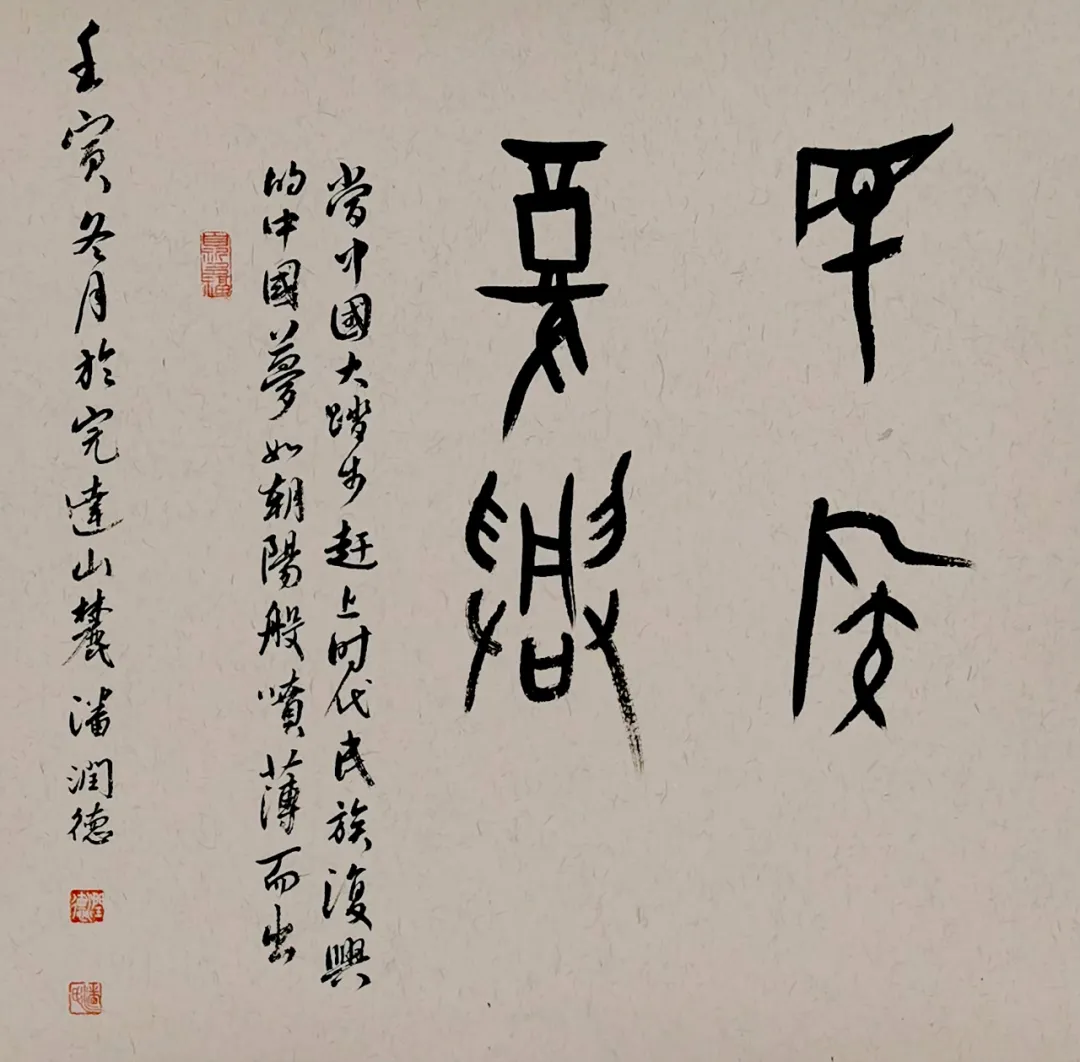 民族
復興
當中國大踏步赶上时代民族復興
的中國夢如朝陽般噴薄而出
壬寅冬月於完達山麓潘潤德